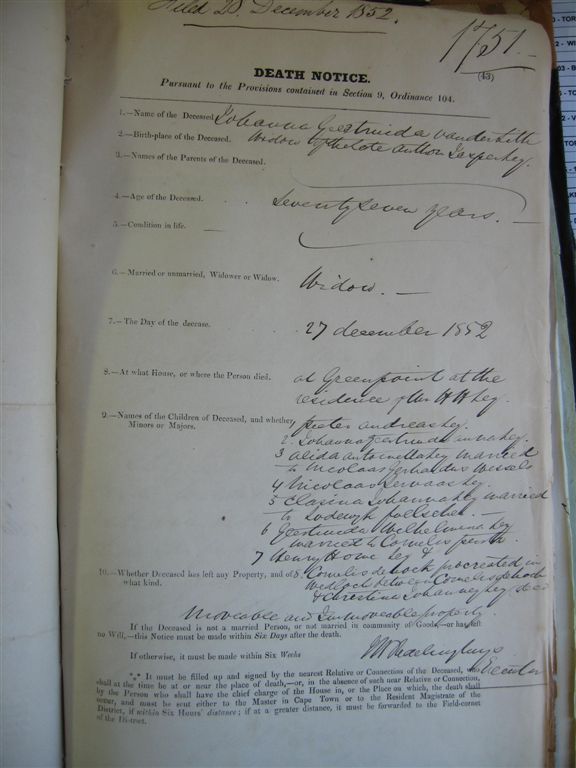 Filed 28 December 1852.
1751.
DEATH NOTICE.
(43)
Pursuant to the Provisions contained in Section 9, Ordinance 104.
1.—Name of the Deceased Johanna Geertruida
2.—Birth-place of the Deceased. Widow of the late Anthon Jasper
3.—Names of the Parents of the Deceased.
4.—Age of the Deceased. Seventy Seven years.—
5.—Condition in life. —
6.—Married or unmarried, Widower or Widow. Widow.—
7.—The Day of the decease. 27 december 1852
8.—At what House, or where the Person died. at Greenpoint at the
residence of Mr H H
9.—Names of the Children of Deceased, and whether
Minors or Majors.
pieter andreas
2. Johanna Geertruida
3 alida antoinetta married
to Nicolaas Gerhardus Wessels
4 Nicolaas Servaas
5 Clasina Johanna married
to Lodewyk
6 Geertruida Wilhelmina
married to Cornelis
7 Henry Howe &
10.—Whether Deceased has left any Property, and of
what kind.
8. Cornelis de kock procreated in
Wedlock between Cornelis de kock
& Christina Johanna
Moveable and Immoveable property.
If the Deceased is not a married Person, or not married in community of Goods,—or has left
no Will,—this Notice must be made within Six Days after the death.
If otherwise, it must be made within Six Weeks
Executor
*** It must be filled up and signed by the nearest Relative or Connection of the Deceased, who
shall at the time be at or near the place of death,—or, in the absence of such near Relative or Connection,
by the Person who shall have the chief charge of the House in, or the Place on which, the death shall
occur, and must be sent either to the Master in Cape Town or to the Resident Magistrate of the
District, if within Six Hours' distance; if at a greater distance, it must be forwarded to the Field-cornet
of the District.